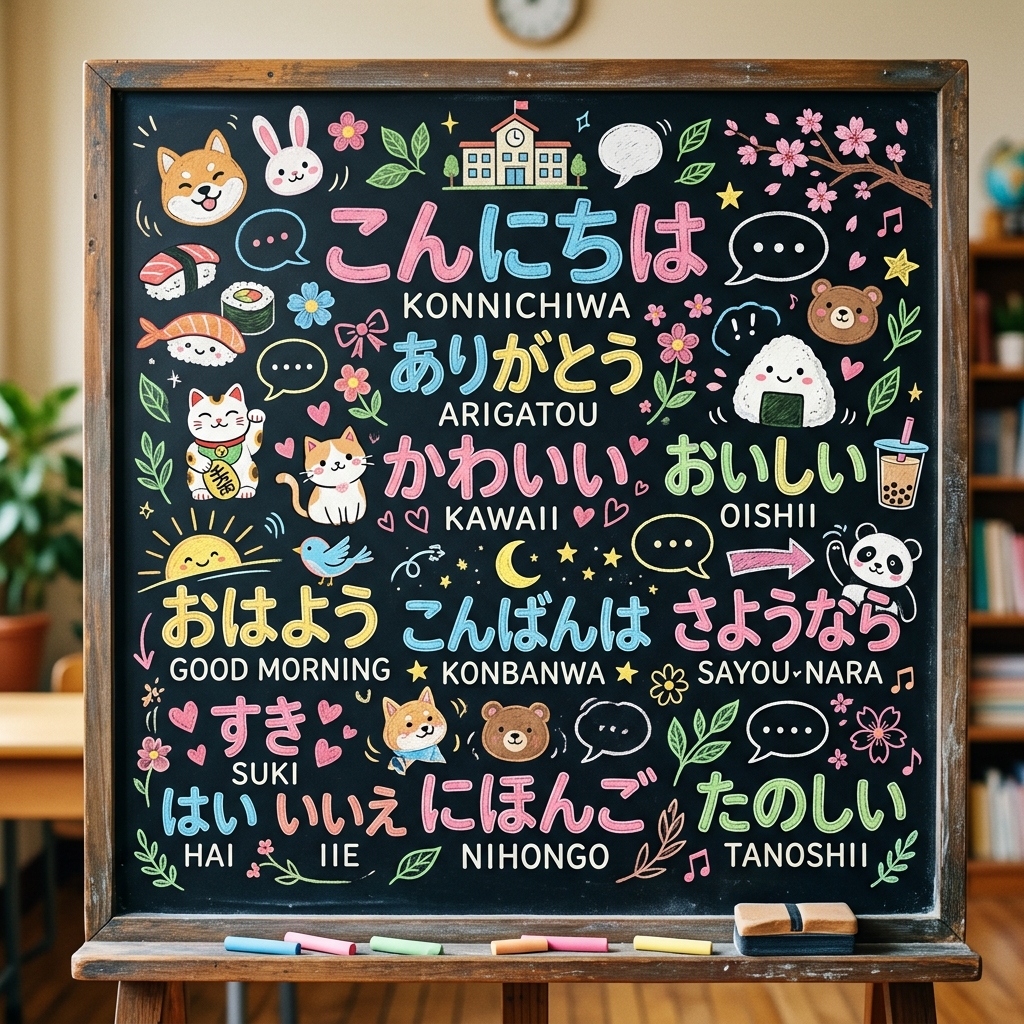 こんにちは
KONNICHIWA
ありがとう
ARIGATOU
かわいい おいしい
KAWAII OISHII
おはよう こんばんは さようなら
GOOD MORNING KONBANWA SAYOU-NARA
すき
SUKI
はい いいえ にほんご たのしい
HAI IIE NIHONGO TANOSHII